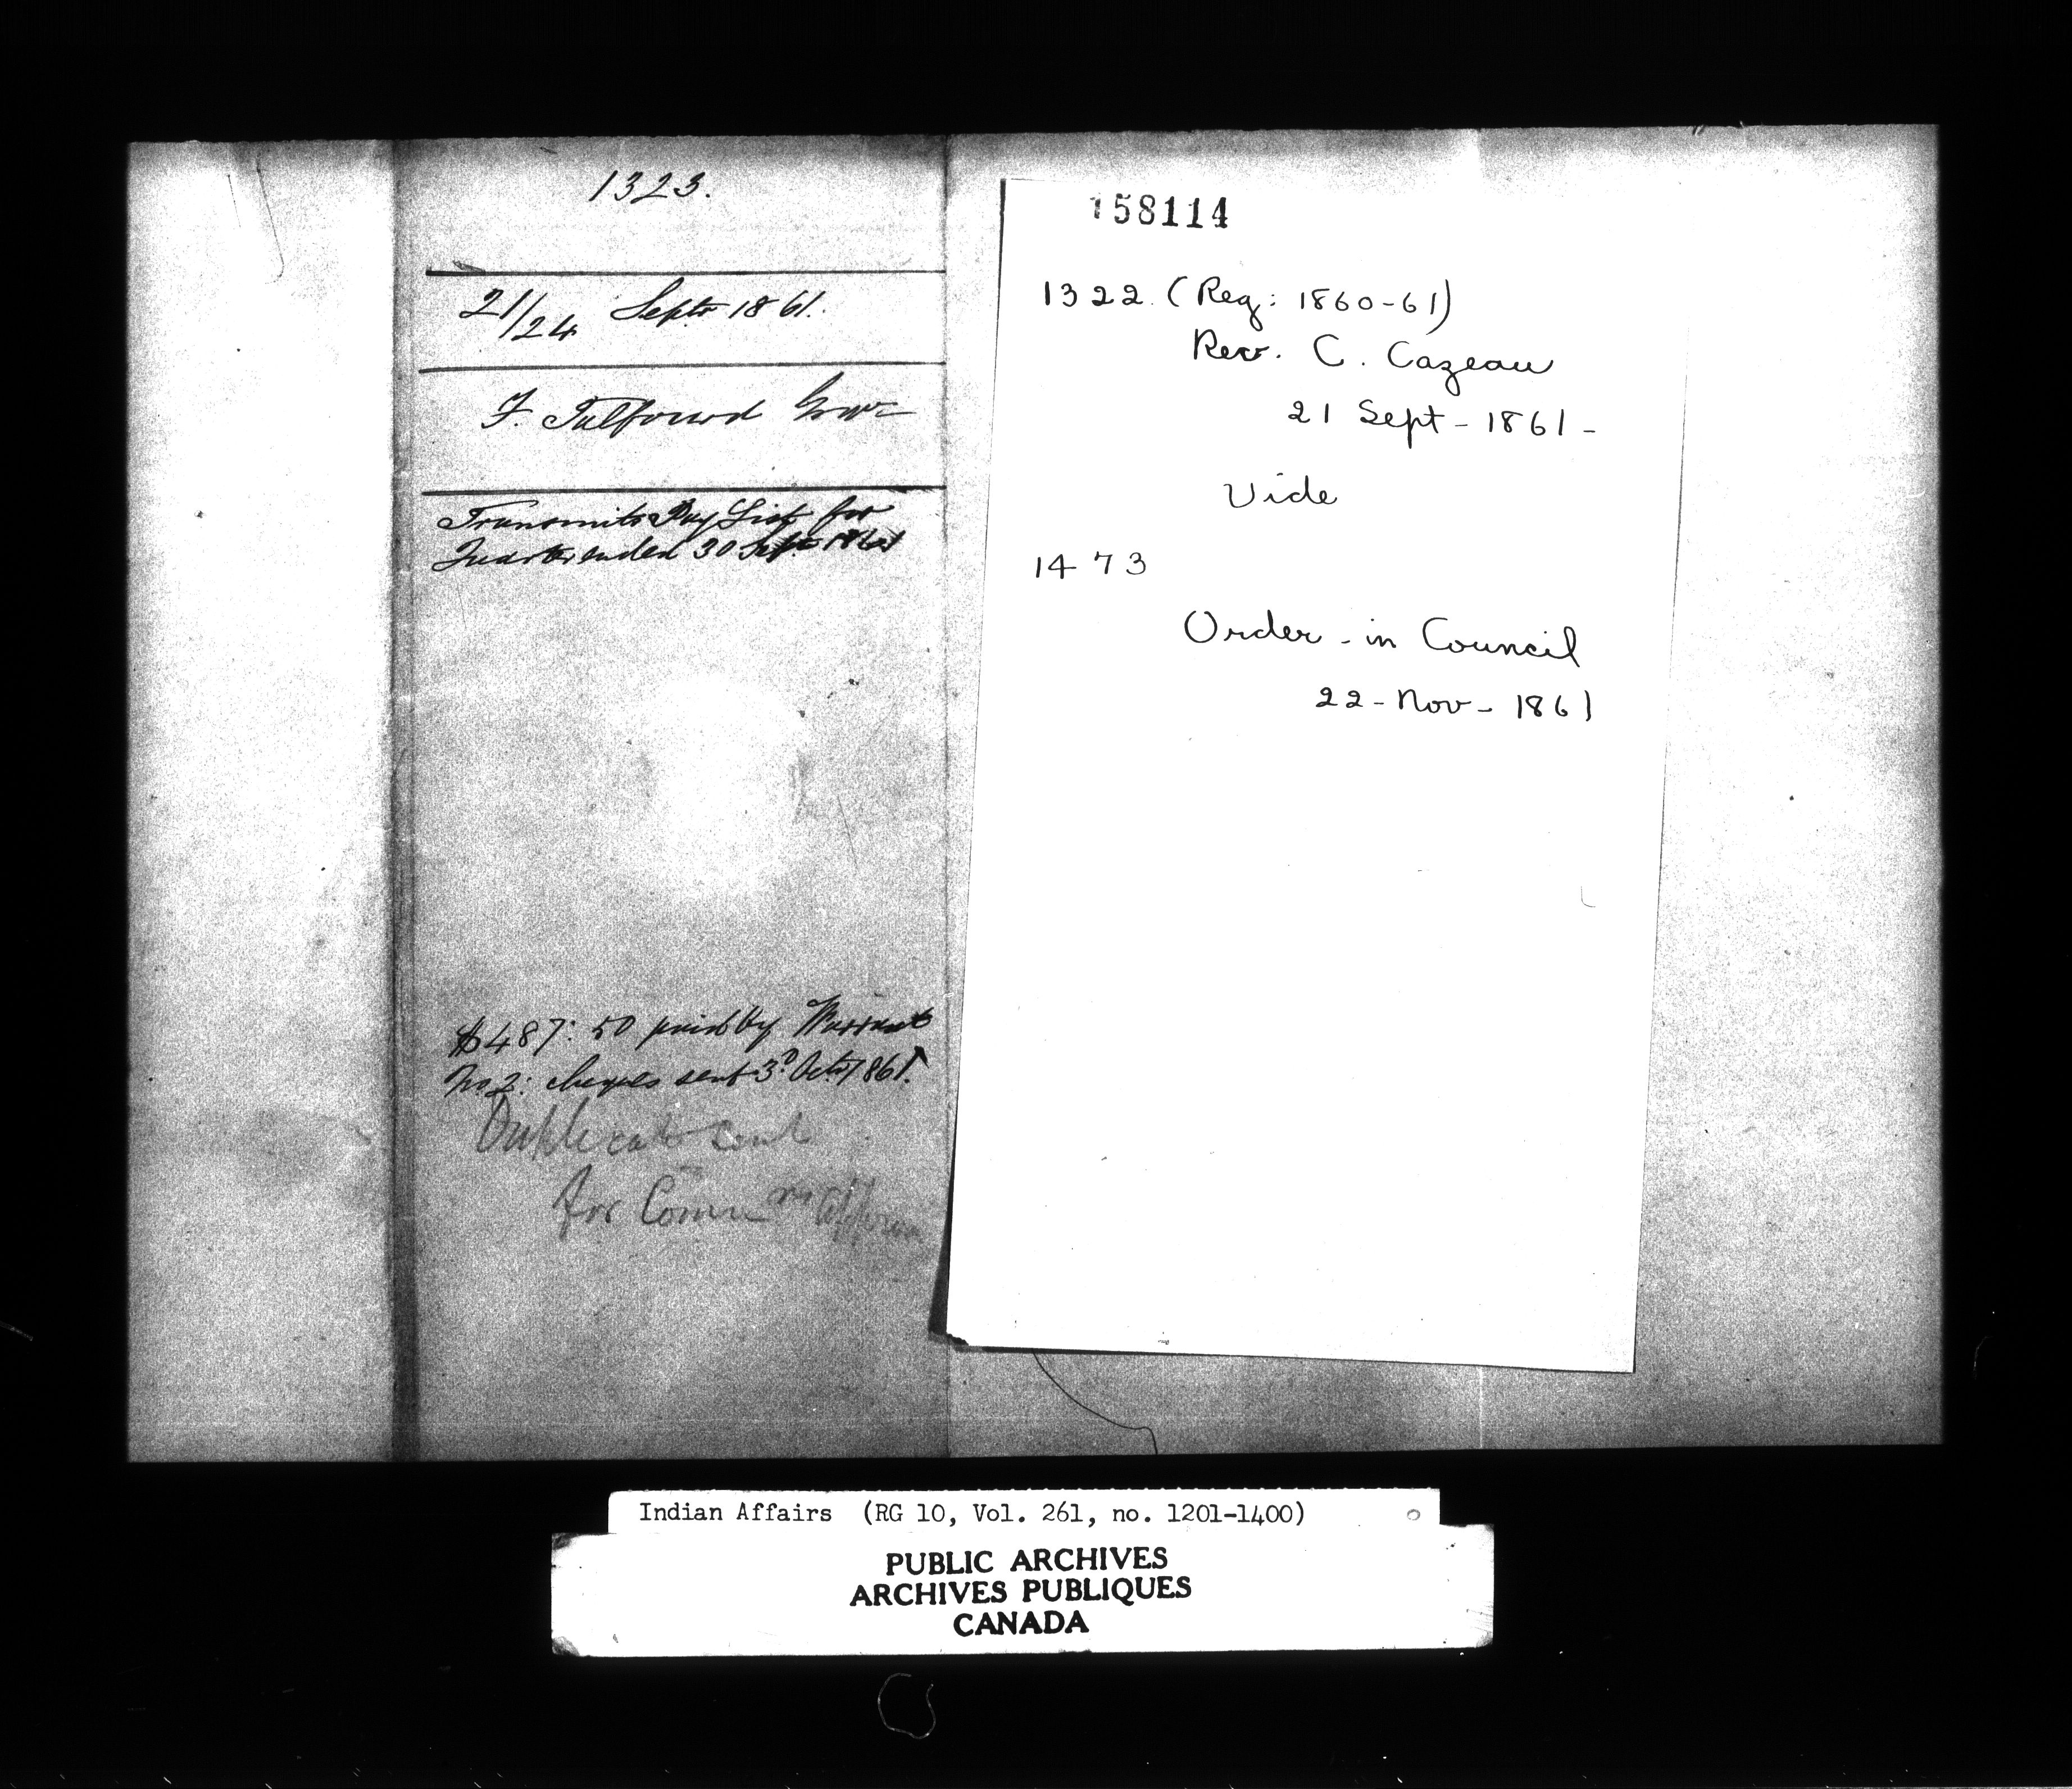 1323.
21/24 Septr 1861.
F. Talfourd
Transmits Pay List for
Quarter ended 30 Sept 1861
$487: 50 paid by Warrant
No. 2: cheques sent 3d Octr 1861.
Duplicate sent
for Comm
158114
1322 (Reg: 1860-61)
Rev. C. Cazeau
21 Sept - 1861 -
Vide
1473
Order - in Council
22 - Nov - 1861
Indian Affairs (RG 10, Vol. 261, no. 1201-1400)
PUBLIC ARCHIVES
ARCHIVES PUBLIQUES
CANADA